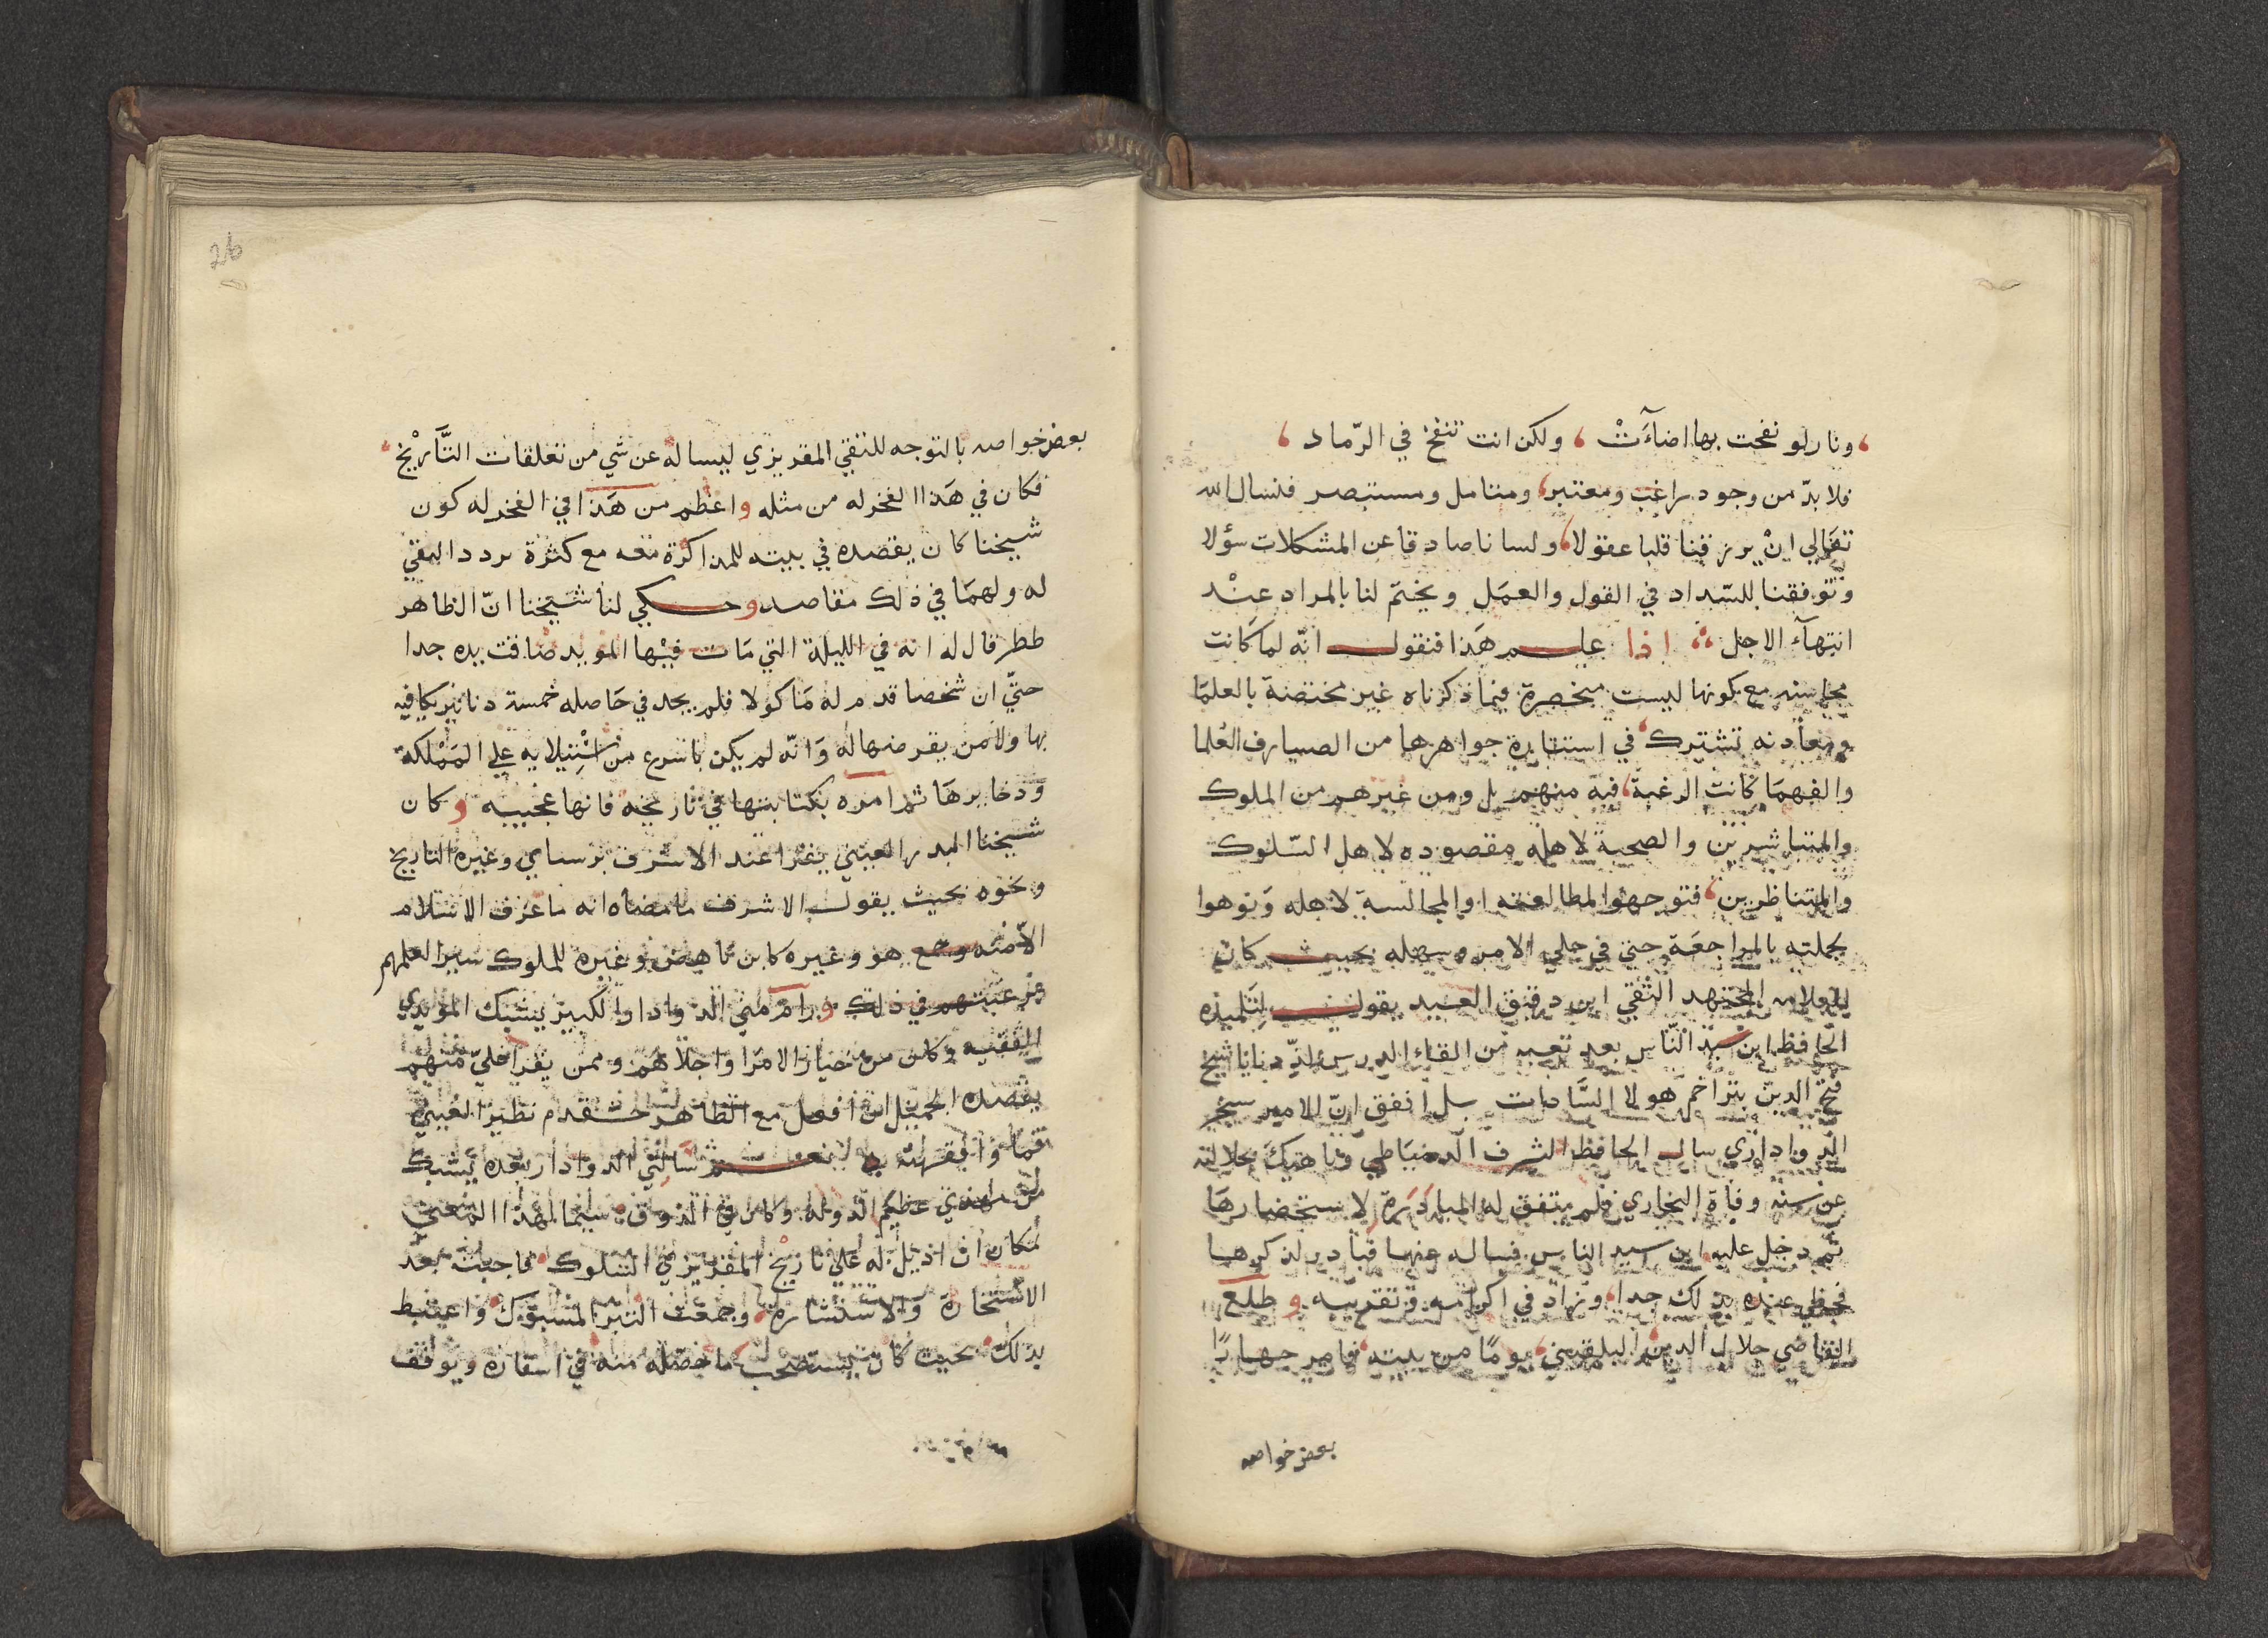 ونار لو نفخت بها اضآءَتْ ، ولكن انت تنفخ في الرّماد ،
فلا بدّ من وجود راغب ومعتبر، ومتامل ومستبصر فنسال الله
تعَالي انْ يرزقنا قلبا عقولا، ولسانا صادقا عن المشكلات سؤلا
وتوفقنا للسّداد في القول والعمَل ويختم لنا بالمراد عنْد
انتهآء الاجل اذا علم هَذا فنقول انّه لما كانت
محاسنه مع كونها ليست منحصرة فيما ذكرناه غير مختصّة بالعلمَا
ومعادنه تشترك في استنارة جواهرها من الصيارف العُلما
والفهمَا كانت الرغبة، فيه منهم بل ومن غيرهم من الملوك
والمتباشرين والصحبة لاهله مقصوده لاهل السّلوك
والمتناظرين، فتوجهوا لمطالعته او المجالسة لاهله وَنوهوا
بجملته بالمراجعَة حتي في جلي الامر وسهله بحيث كان
العلامه المجتهد التقي ابن دقيق العيد يقول لتلميذه
الحافظ ابن سيّد النّاس بعد تعبه من القاء الدرس لذّ دنانا شيخ
فتح الدين بتراخم هولا السَّادات بل اتفق انّ الامير سنجر
الدواداري سال الحافظ الشرف الدمياطي وناهيك بجلالته
عن سنه وفاة البخاري فلم يتفق له المبادَرَة لاستحضارهَا
ثم دخل عليه ابن سيد الناس فساله عنها فبادر لذكرها
فحظي عنده بذلك جدا، وزاد في اكرامه وتقريبه و طلع
القاضي جلال الدين البلقيني يومًا من بيته فامر جهارًا
بعض خواصه
26
بعض خواصه بالتوجه للتقي المقريزي ليساله عن شي من تعلقات التَّأريْخ،
فكان في هَذا الفخر له من مثله واعظم من هَذا في الفخر له كون
شيخنا كان يقصده في بيته للمذاكرة معه مع كثرة تردد التقي
له ولهمَا في ذلك مقاصد وحكي لنا شيخنا انّ الظاهر
ططر قال له انه في الليلة التي مَات فيْها المويد ضاقت يده جدا
حتّي ان شخصا قدم له مَاكولا فلم يجد في حَاصله خمسة دنانير يكافيه
بها ولا من يقرضهاله وَانّه لم يكن باسرع من اسْتيلايه علي المَمْلكة
وذخايرهَا ثم امره بكتابتها في تاريخه فانها عجيبه و كان
شيخنا البدر العيني يقرا عند الاشرف برسباي وغيره التاريخ
ونحوه بحيث يقول الاشرف ما معناه انه ما عرف الاسلام
الا منه وصنع هو وغيره كابن ناهض وغيره للملوك سيرا لعلمهم
برغبتهم في ذلك ورام مني الدوادار الكبير يشبك المويدي
الفقيه وكان من خيار الامرا واجلاهم وممن يقرا علي منهم
بقصده الجميل ان افعل مع الظاهر خشقدم نظير العيني
فما وافقته لا نعم ثم سَالني الدوادار بعده يشبك
من مهدي عظيم الدوله وكان في الذوق سيما لهذا المعني
لمكان ان اذيل له علي تاريْخ المقريزي السلوك فاجبت بعد
الاستخارة والاستشارة وجمعت التبر المسبوك واغتبط
بذلك بحيث كان يستصحب ما حصّله منه في اسفاره ويوقف